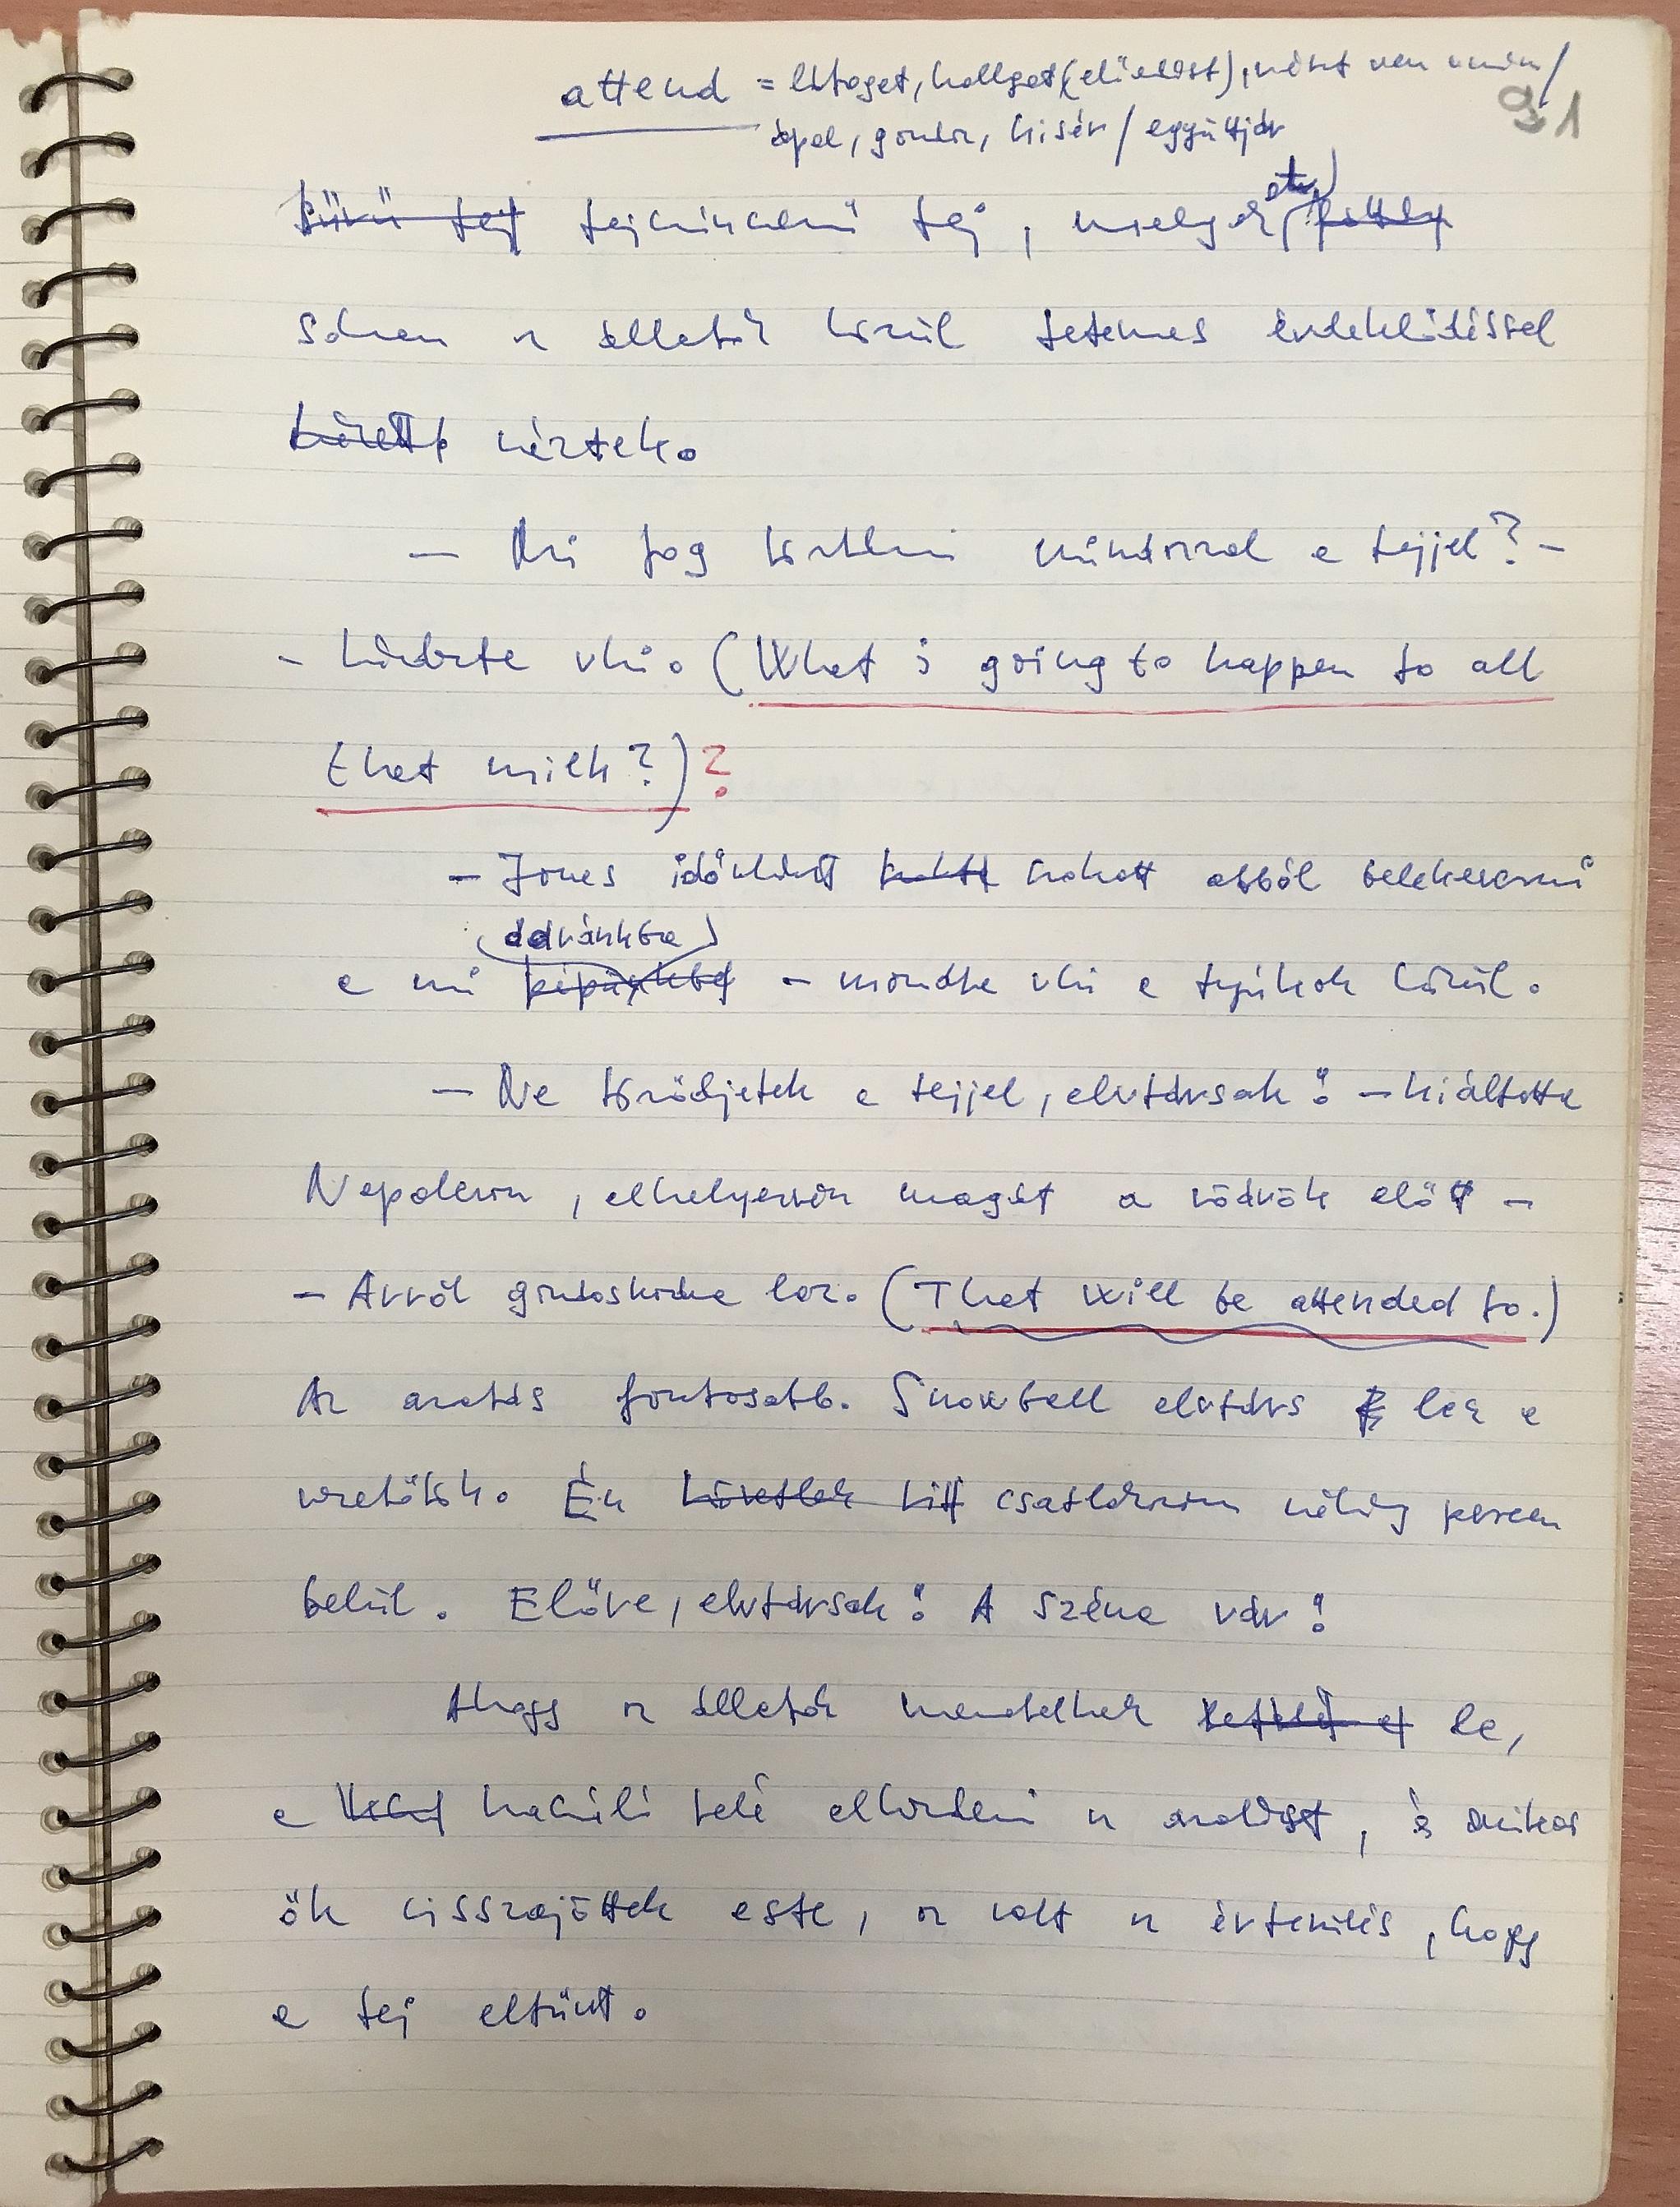 attend = látogat, hallgat (előadást), részt ven vmin/
91
ápol, gondoz, kisér / együttjár
sűrű tej tejszínszerű tej, melyek
sokan az állatok közül tetemes érdeklődéssel
nézték.
– Mi fog történni mindazzal a tejjel? –
– kérdezte vki. (What is going to happen to all
that milk?) ?
– Jones időnként szokott abból belekeverni
daránkba
a mi – mondta vki a tyúkok közül.
– Ne törődjetek a tejjel, elvtársak! – kiáltotta
Napoleon, elhelyezvén magát a vödrök előtt –
– Arról gondoskodva lesz. (That will be attended to.)
Az aratás fontosabb. Snowball elvtárs lesz a
vezetőtök. Én követlek csatlakozom néhány percen
belül. Előre, elvtársak! A széna vár!
Ahogy az állatok meneteltek le,
a kaszáló felé elkezdeni az aratást, és mikor
ők visszajöttek este, az volt az értesülés, hogy
a tej eltűnt.